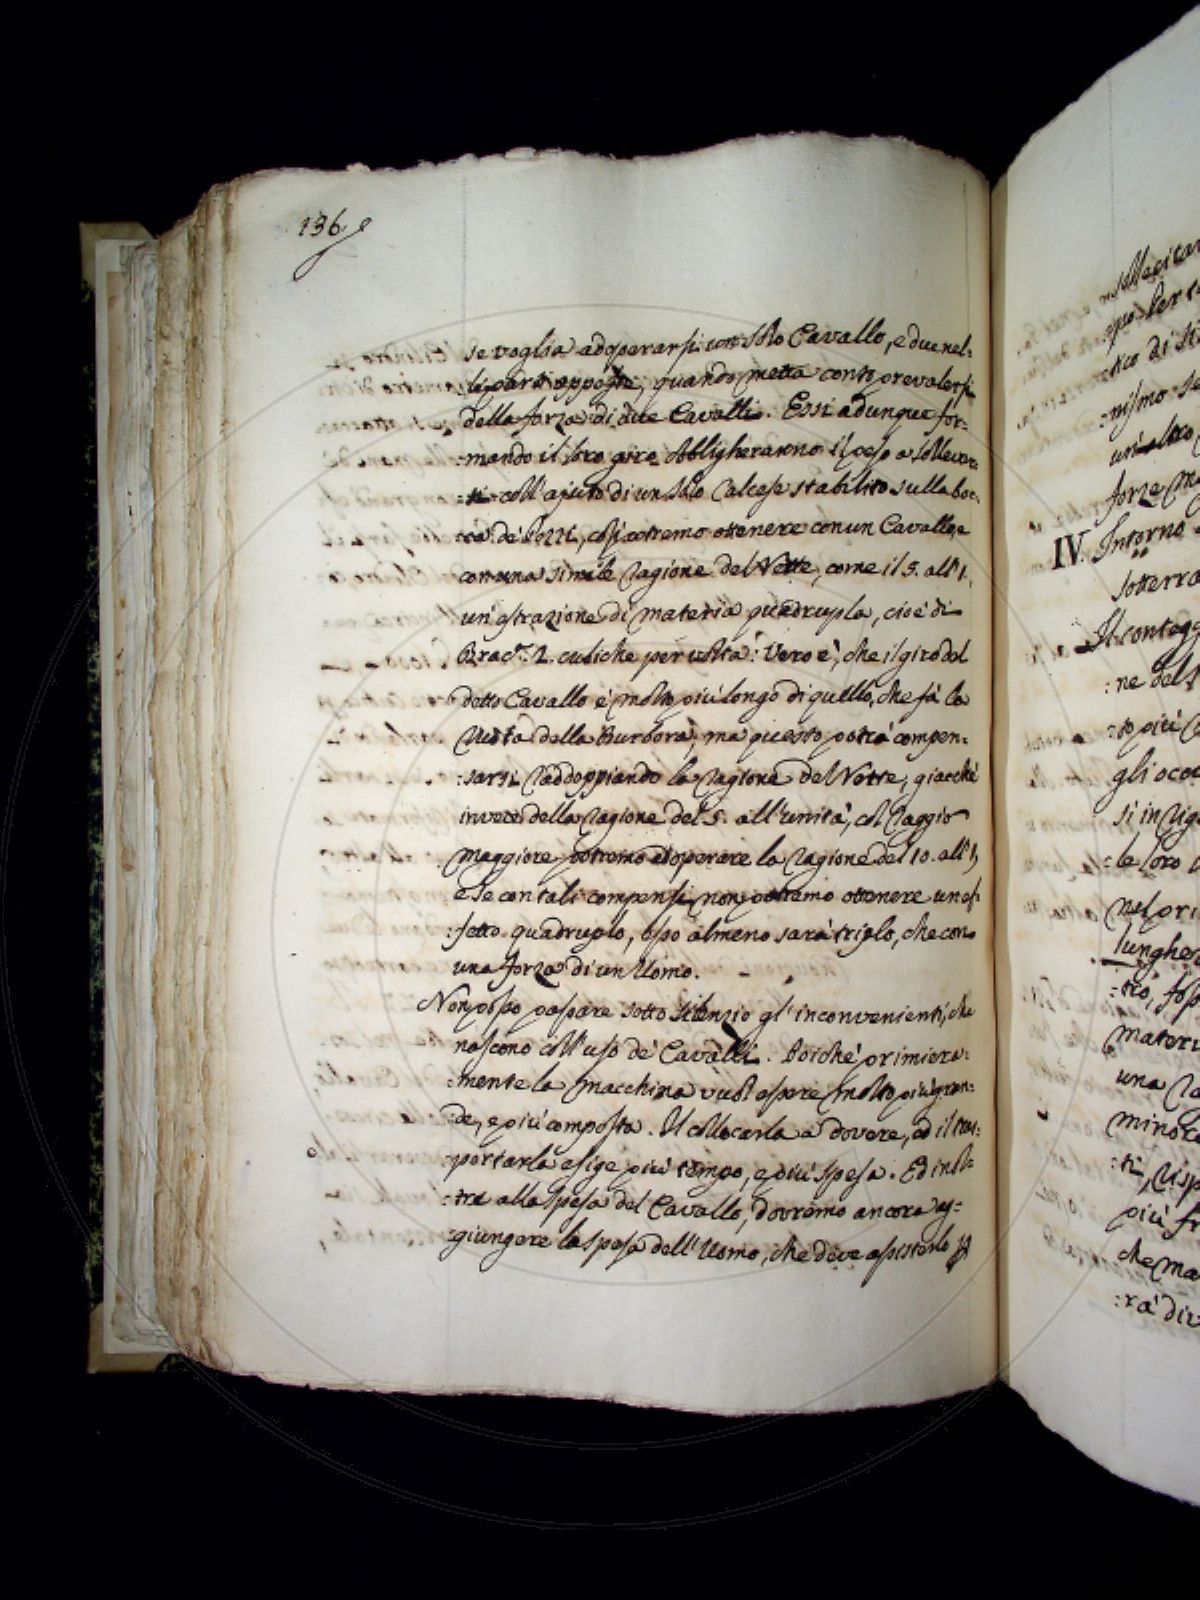 136.
se voglia adoperarsi un solo Cavallo, e due nel:
:le parti opposte, quando metta conto prevalersi
della forza di due Cavalli. Essi adunque for:
:mando il loro giro obbligheranno il peso a sollevar:
:si coll'ajuto di un solo Calcese stabilito sulla boc:
:ca de' Pozzi, così potremo ottenere con un Cavallo, e
con una simile ragione del Vette, come il 5. all'1.
un'estrazione di materia quadrupla, cioè di
Bracᵃ. 2. cubiche per volta: Vero è, che il giro del
detto Cavallo è molto più longo di quello, che fà la
Ruota della Burbora, ma questo potrà compen:
:sarsi raddoppiando la ragione del Vette, giacchè
invece della ragione del 5. all'unità, col raggio
maggiore potremo adoperare la ragione del 10. all'1,
e se con tali compensi non potremo ottenere un ef:
:fetto quadruplo, esso almeno sarà triplo, che con
una forza di un Uomo.
Non posso passare sotto silenzio gl'inconvenienti, che
nascono coll'uso de' Cavalli. Poichè primiera:
:mente la macchina vuol essere molto più gran:
:de, e più composta. Il collocarla a dovere, ed il tras:
:portarla esige più tempo, e più spesa. Ed inol:
:tre alla spesa del Cavallo, dovremo ancora ag:
:giungere la spesa dell'Uomo, che deve assisterlo
sollecitar
Per
:co di
:nismo
un'altro
forze
IV. Intorno
sotterra
Il contegg
:ne del
:to più
gli
si in
:le loro
nel pri
lungher
:tro,
materi
una
minor
:ti,
più fr
che ma
:rà div